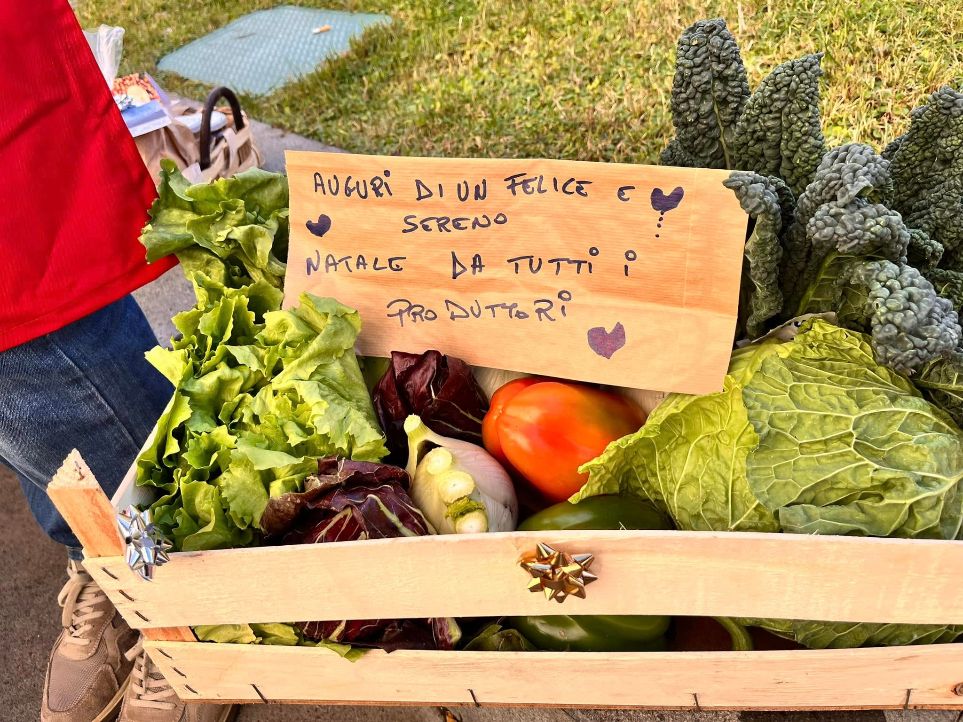 AUGURI DI UN FELICE E
SERENO
NATALE DA TUTTI i
PRODUTTORI